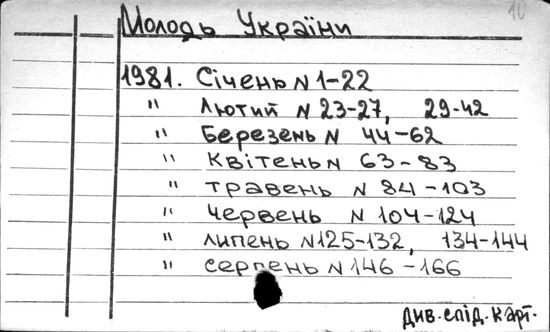 10
Молодь України
1981. Січень N 1-22
" Лютий N 23-27, 29-42
" Березень N 44-62
" Квітень N 63-83
" травень N 84-103
" червень N 104-124
" липень N 125-132, 134-144
" серпень N 146-166
див. слід. карт.